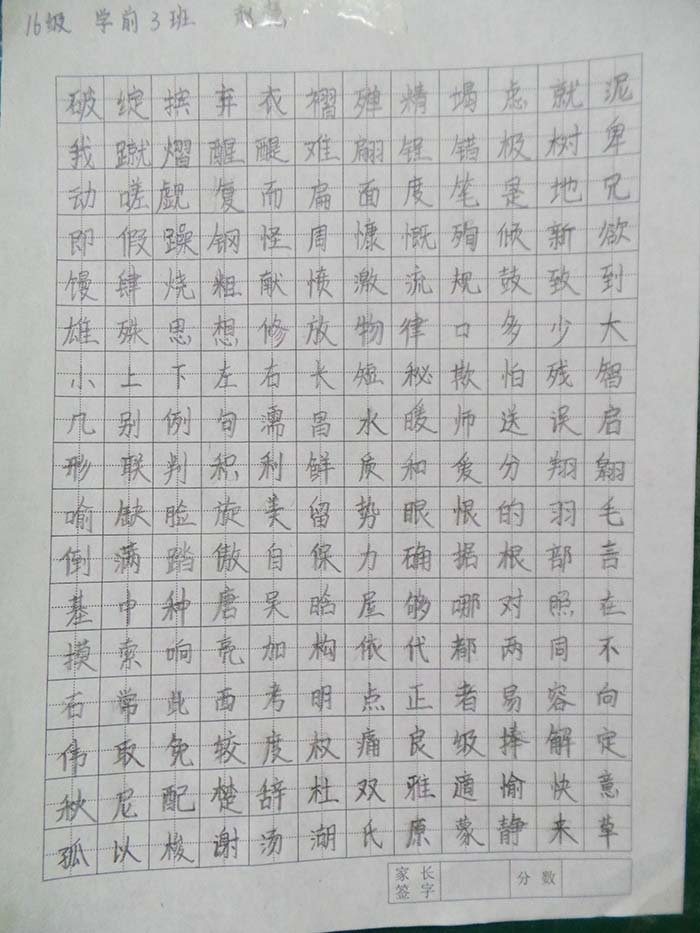 16级 学前3班
破绽摈弃衣褶殚精竭虑就泥
我蹴熠醒醍难翩错极树卑
动嗟觑复而扁面度笔是地兄
即假躁钢怪周慷慨殉倾新欲
馒肆烧粗献愤激流规鼓致到
雄殊思想修放物律口多少大
小上下左右长短秘欺怕残智
几别例句濡昌水暖师送误启
形联判积利鲜质和爱分翔翱
喻缺脸旋美留势眼恨的羽毛
倒满踏傲自保力确据根部言
基中种唐吴晗屋够哪对照在
摸索响亮加构依代都两同不
石常此西考明点正者易容向
伟取免较度权痛良级捧解定
秋尼配楚辞杜双雅遁愉快意
孤以梭谢汤湖氏原蒙静来草
家长签字 分数